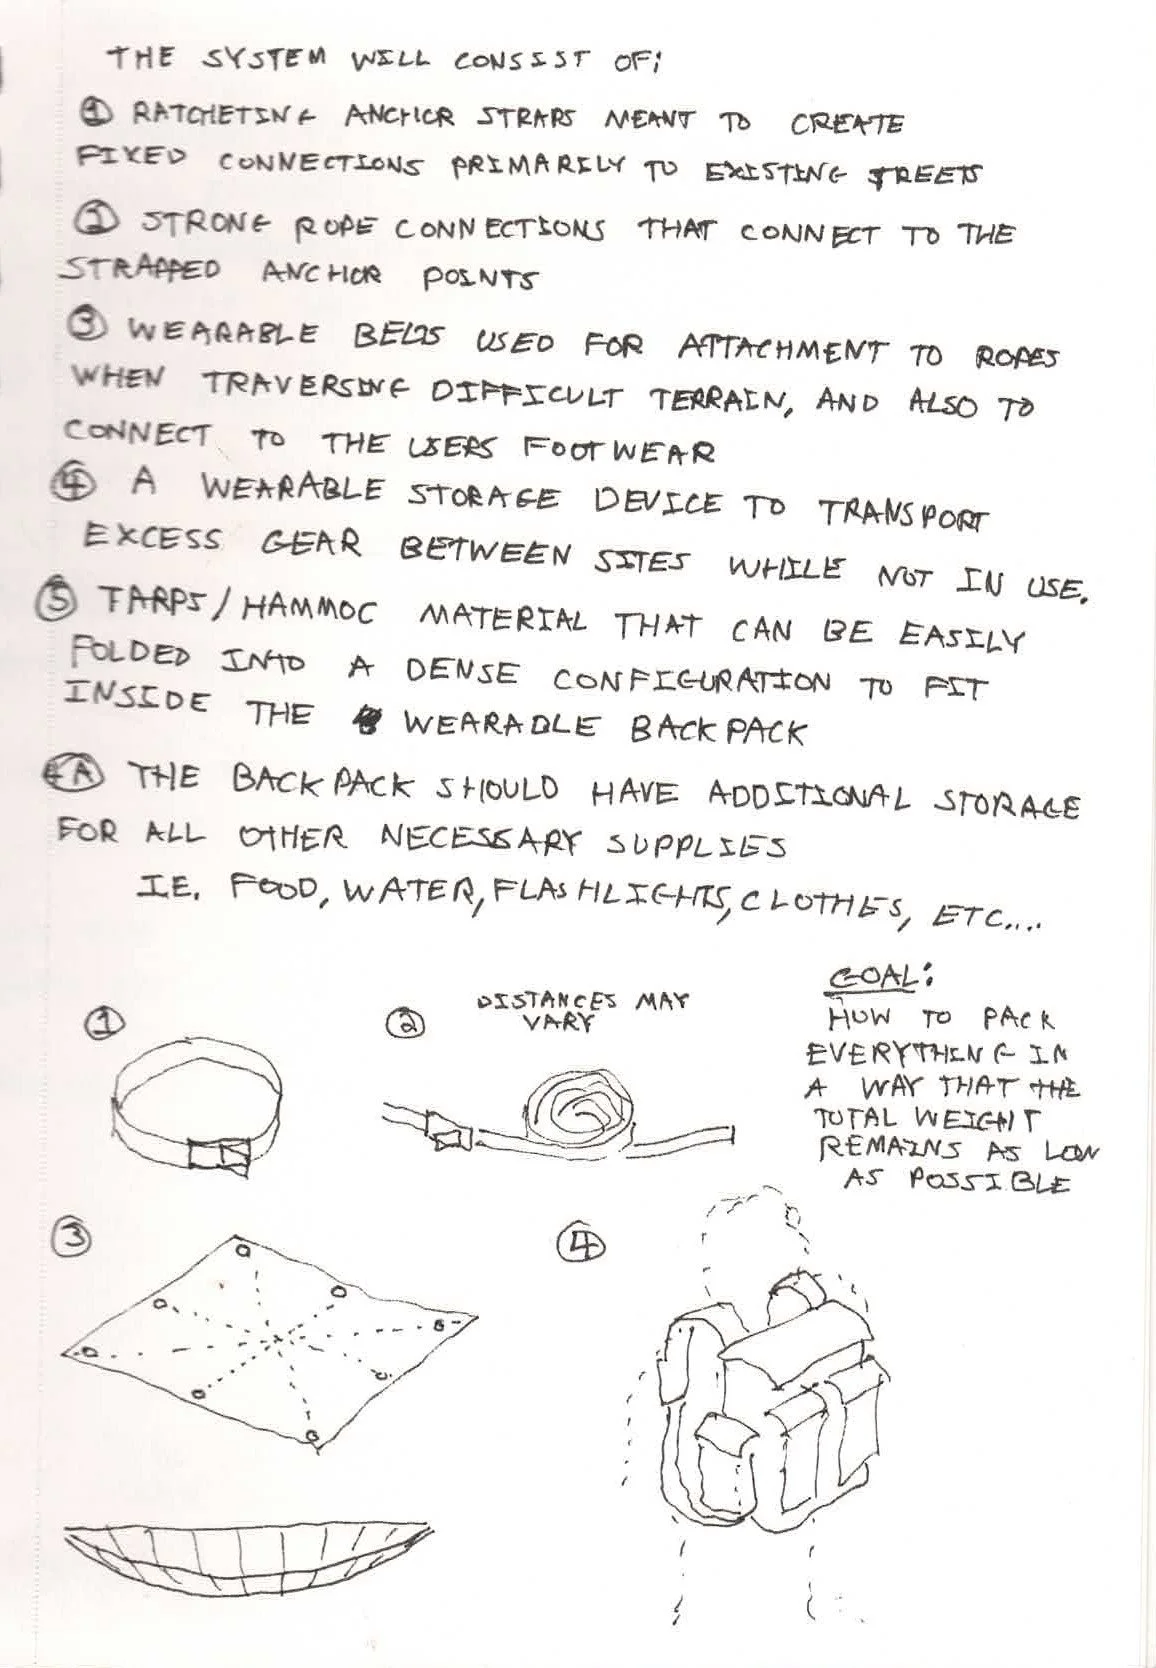 THE SYSTEM WILL CONSIST OF:
① RATCHETING ANCHOR STRAPS MEANT TO CREATE
FIXED CONNECTIONS PRIMARILY TO EXISTING TREETS
② STRONG ROPE CONNECTIONS THAT CONNECT TO THE
STRAPPED ANCHOR POINTS
③ WEARABLE BELTS USED FOR ATTACHMENT TO ROPES
WHEN TRAVERSING DIFFICULT TERRAIN, AND ALSO TO
CONNECT TO THE USERS FOOTWEAR
④ A WEARABLE STORAGE DEVICE TO TRANSPORT
EXCESS GEAR BETWEEN SITES WHILE NOT IN USE.
⑤ TARPS/HAMMOC MATERIAL THAT CAN BE EASILY
FOLDED INTO A DENSE CONFIGURATION TO FIT
INSIDE THE WEARABLE BACKPACK
4A THE BACKPACK SHOULD HAVE ADDITIONAL STORAGE
FOR ALL OTHER NECESSARY SUPPLIES
I.E. FOOD, WATER, FLASHLIGHTS, CLOTHES, ETC....
①
② DISTANCES MAY
VARY
GOAL:
HOW TO PACK
EVERYTHING IN
A WAY THAT THE
TOTAL WEIGHT
REMAINS AS LOW
AS POSSIBLE
③
④